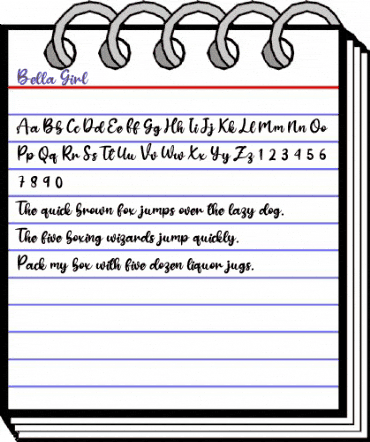 Bella Girl
Aa Bb Cc Dd Ee Ff Gg Hh Ii Jj Kk Ll Mm Nn Oo
Pp Qq Rr Ss Tt Uu Vv Ww Xx Yy Zz 1 2 3 4 5 6
7 8 9 0
The quick brown fox jumps over the lazy dog.
The five boxing wizards jump quickly.
Pack my box with five dozen liquor jugs.